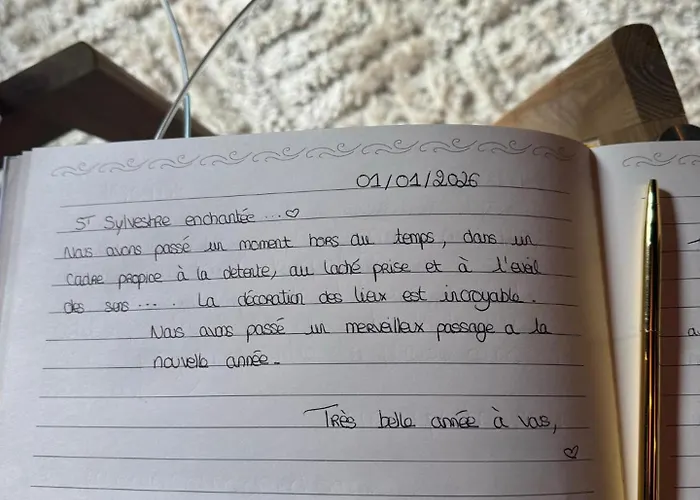 01/01/2026
ST Sylvestre enchantée ... ♡
Nous avons passé un moment hors du temps, dans un
cadre propice à la detente, au laché prise et à l'eveil
des sens .... La décoration des lieux est incroyable.
Nous avons passé un merveilleux passage a la
nouvelle année.
Très belle année à vous,
♡